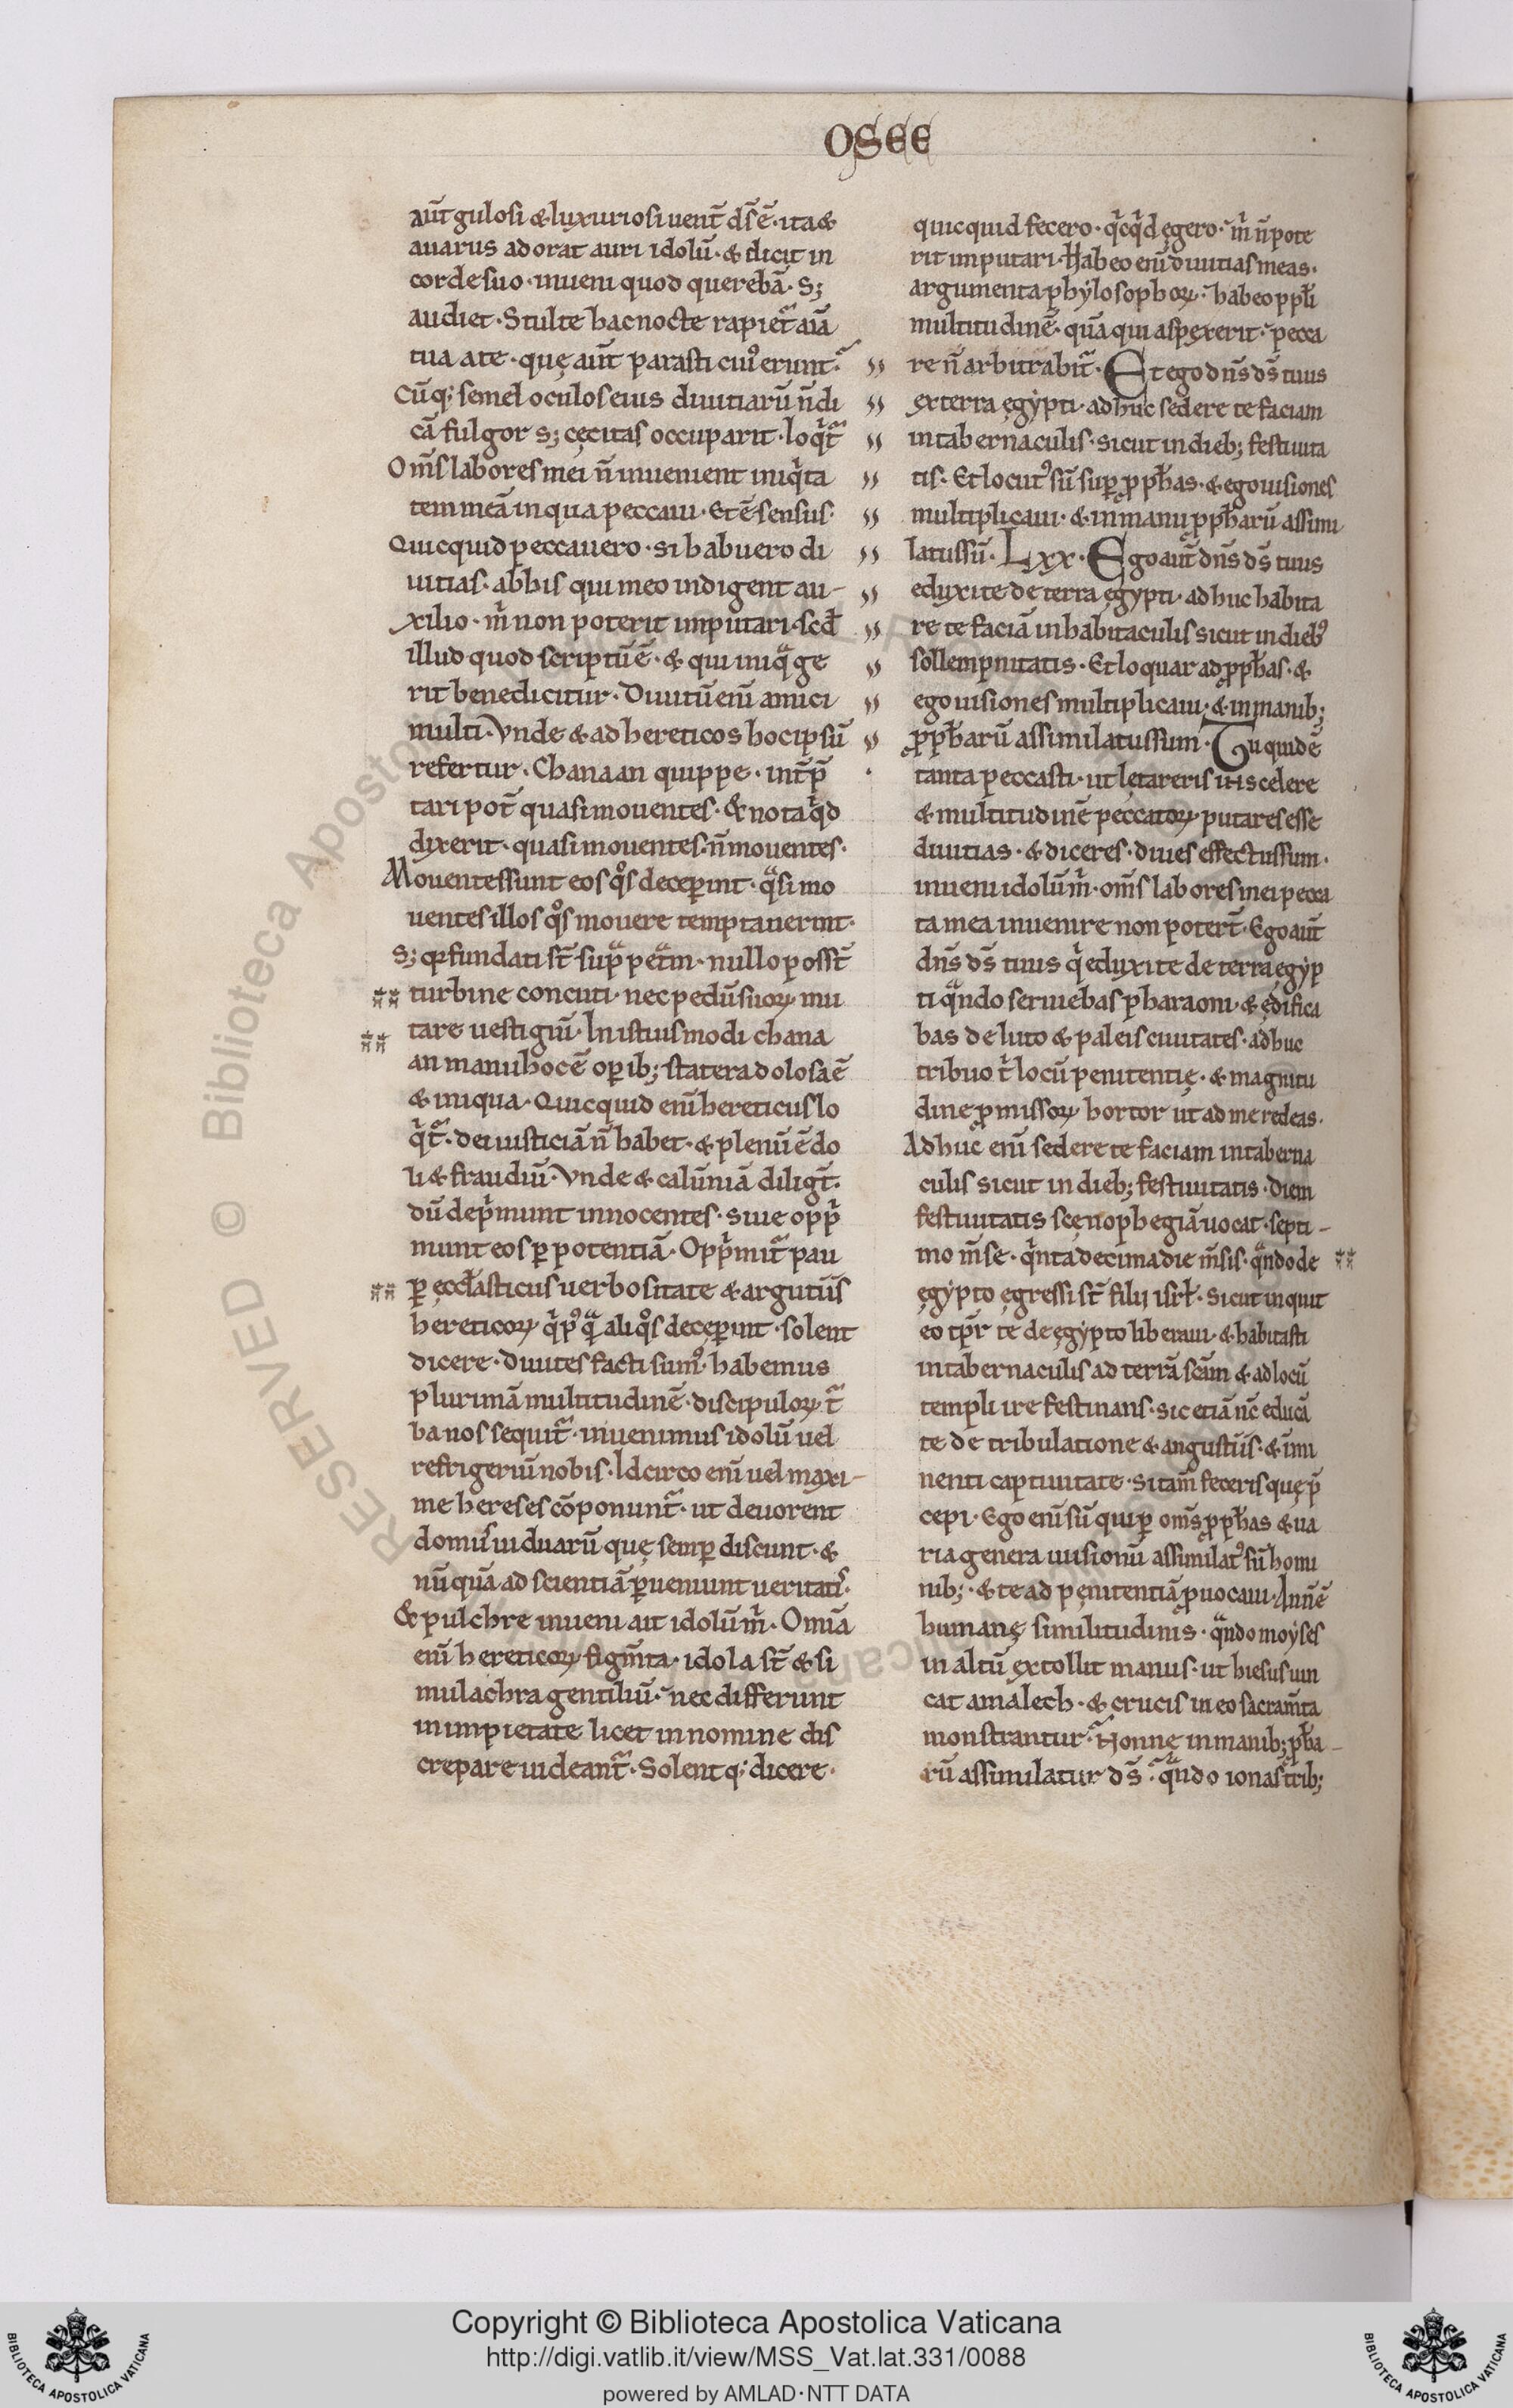 OSEE
aut̄ gulosi & luxuriosi uent̄ ds̄ ē· ita &
auarus adorat auri idolū· & dicit in
corde suo· inueni quod querebā· S;
audiet· Stulte hac nocte rapiet᷑ aīa
tua a te· quę aut̄ parasti cui᾽ erunt᷑
Cūq; semel oculos eius diuitiarū ñdi
cā fulgor s; cęcitas occuparit· loqͥt᷑
Om̄s labores mei ñ inuenient iniqͥta
tem meā in qua peccaui· Et ē sensus·
Quicquid peccauero· si habuero di
uitias· ab his qui meo indigent au-
xilio· m̊ non poterit imputari· scd̄
illud quod scriptū ē· & qui iniqͣ ge
rit benedicitur· Diuitū eni̅ amici
multi· Vnde & ad hereticos hoc ipsū
refertur· Chanaan quippe· int̄p̄
tari pot̄ quasi mouentes· & nota qͥd
dixerit· quasi mouentes· ñ mouentes·
Mouentes sunt eos qͦs deceperint· qͣsi mo
uentes illos qͦs mouere temptauerint·
S; qꝛ fundati st̄ supͣ petͣm· nullo posst̄
turbine concuti· nec pedū suoꝝ mu
tare uestigiū· In istiusmodi chana
an manu hoc ē opib; statera dolosa ē
& iniqua· Quicquid eni̅ hereticus lo
qͥt᷑· dei iusticiā ñ habet· & plenū ē do
li & fraudiū· Vnde & calūniā diligt̄·
dū depͥmunt innocentes· siue oppͥ
munt eos ꝑ potentiā· Oppͥmit᷑ pau
ꝑ ęccl̄asticus uerbositate & argutiis
hereticoꝝ qͥ p᾽qͣ aliqͦs deceꝑint· solent
dicere· Diuites facti sum᾽· habemus
plurimā multitudinē· discipuloꝝ t᷑
ba nos sequit᷑· inuenimus idolū uel
refrigeriū nobis· Idcirco eni̅ uel maxi-
me hereses cōponunt᷑· ut deuorent
domus uiduarū quę semꝑ discunt· &
nūquā ad scientiā ꝑueniunt ueritatis·
& pulchre inueni ait idolū m̊· Omia
eni̅ hereticoꝝ figm̄ta· idola st̄ & si
mulachra gentiliū· nec differunt
in impietate licet in nomine dis
crepare uideant᷑· Solent q; dicere·
quicquid fecero· qͥcqͥd ęgero· m̊ ñ pote
rit imputari· Habeo eni̅ diuitias meas·
argumenta phylosophoꝝ· habeo ppl̄i
multitudinē· quā qui aspexerit· pecca
re ñ arbitrabit᷑· Et ego dn̄s ds̄ tuus
ex terra ęgypti· adhuc sedere te faciam
in tabernaculis· sicut in dieb; festiuita
tis· Et locut᾽ sū suꝑ ꝓph̄as· & ego uisiones
multiplicaui· & in manu ꝓph̄arū assimi
latus sū· Lxx· Ego aut̄ dn̄s ds̄ tuus
eduxi te de terra ęgypti· adhuc habita
re te faciā in habitaculis sicut in dieb᾽
sollempnitatis· Et loquar ad ꝓph̄as· &
ego uisiones multiplicaui· & in manib;
ꝓph̄arū assimilatus sum· Tu quidē
tanta peccasti· ut lętareris in scelere
& multitudinē peccatoꝝ putares esse
diuitias· & diceres· diues effectus sum·
inueni idolū m̊· om̄s labores mei pecca
ta mea inuenire non potert̄· Ego aut̄
dn̄s ds̄ tuus qͥ eduxi te de terra egyp
ti qͣndo seruiebas pharaoni· & ędifica
bas de luto & paleis ciuitates· adhuc
tribuo tͥ locū penitentię· & magnitu
dine ꝓmissoꝝ hortor ut ad me redeas·
Adhuc eni̅ sedere te faciam in taberna
culis sicut in dieb; festiuitatis· Diem
festiuitatis scęnophegiā uocat· septi-
mo m̄se· qͥnta decima die m̄sis· qͣndo de
ęgypto ęgressi st̄ filii isrl̄· Sicut inquit
eo tp̄r te de ęgypto liberaui· & habitasti
in tabernaculis ad terrā scā̄m & ad locū
templi ire festinans· sic etiā nc̄ educā
te de tribulatione & angustiis· & īmi
nenti captiuitate· si tam̄ feceris quę p̄
cepi· Ego eni̅ sū qui ꝑ om̄s ꝓph̄as & ua
ria genera uisionū assimilat᾽ sū homi
nib;· & te ad pęnitentiā ꝓuocaui· An ñ ē
humanę similitudinis· qͣndo moyses
in altū extollit manus· ut hiesus uin
cat amalech· & crucis in eo sacram̄ta
monstrantur᷑ Nonne in manib; ꝓph̄a-
rū assimilatur ds̄᷑ qͣndo ionas trib;
Copyright © Biblioteca Apostolica Vaticana
http://digi.vatlib.it/view/MSS_Vat.lat.331/0088
powered by AMLAD·NTT DATA